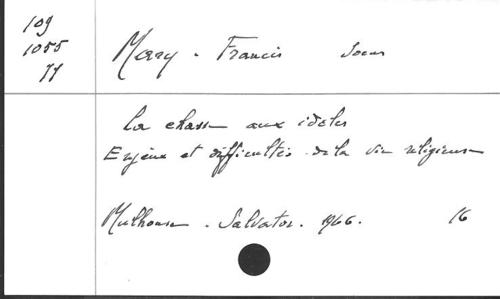 109
1055
77
Mary - Francis Soeur
La chasse aux idoles
Enjeux et difficultés de la vie religieuse
Mulhouse - Salvator. 1966. 16